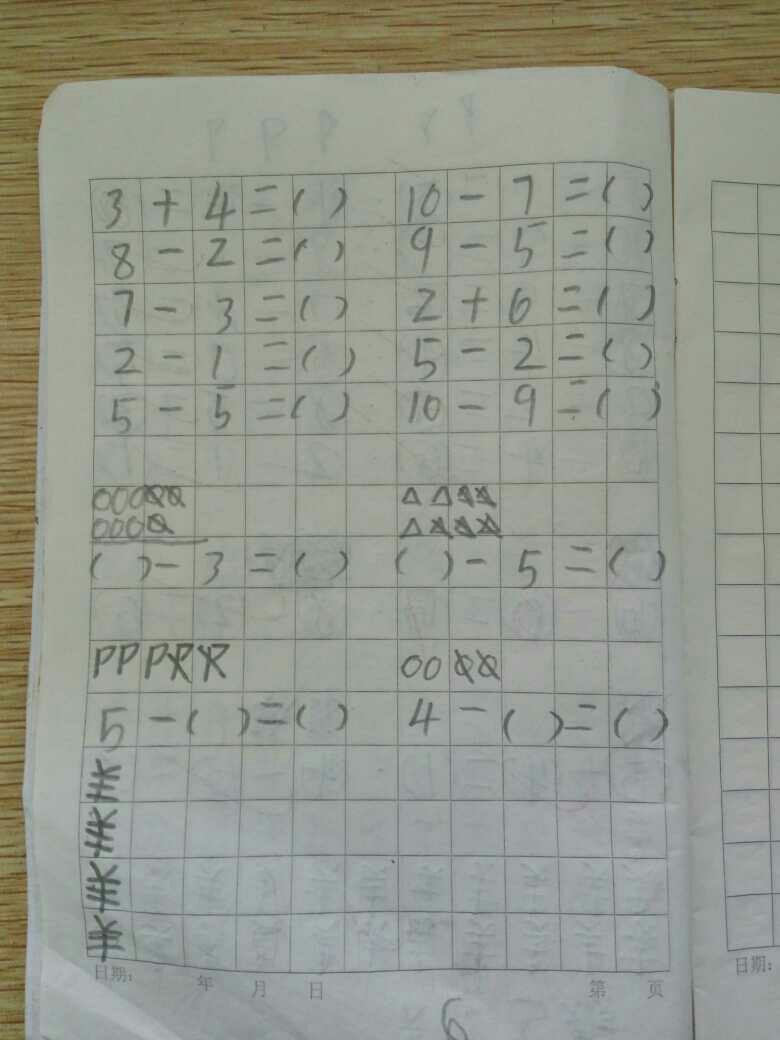 3 + 4 = ( ) 10 - 7 = ( )
8 - 2 = ( ) 9 - 5 = ( )
7 - 3 = ( ) 2 + 6 = ( )
2 - 1 = ( ) 5 - 2 = ( )
5 - 5 = ( ) 10 - 9 = ( )
( ) - 3 = ( ) ( ) - 5 = ( )
5 - ( ) = ( ) 4 - ( ) = ( )
日期: 年 月 日 第 页
日期:
6